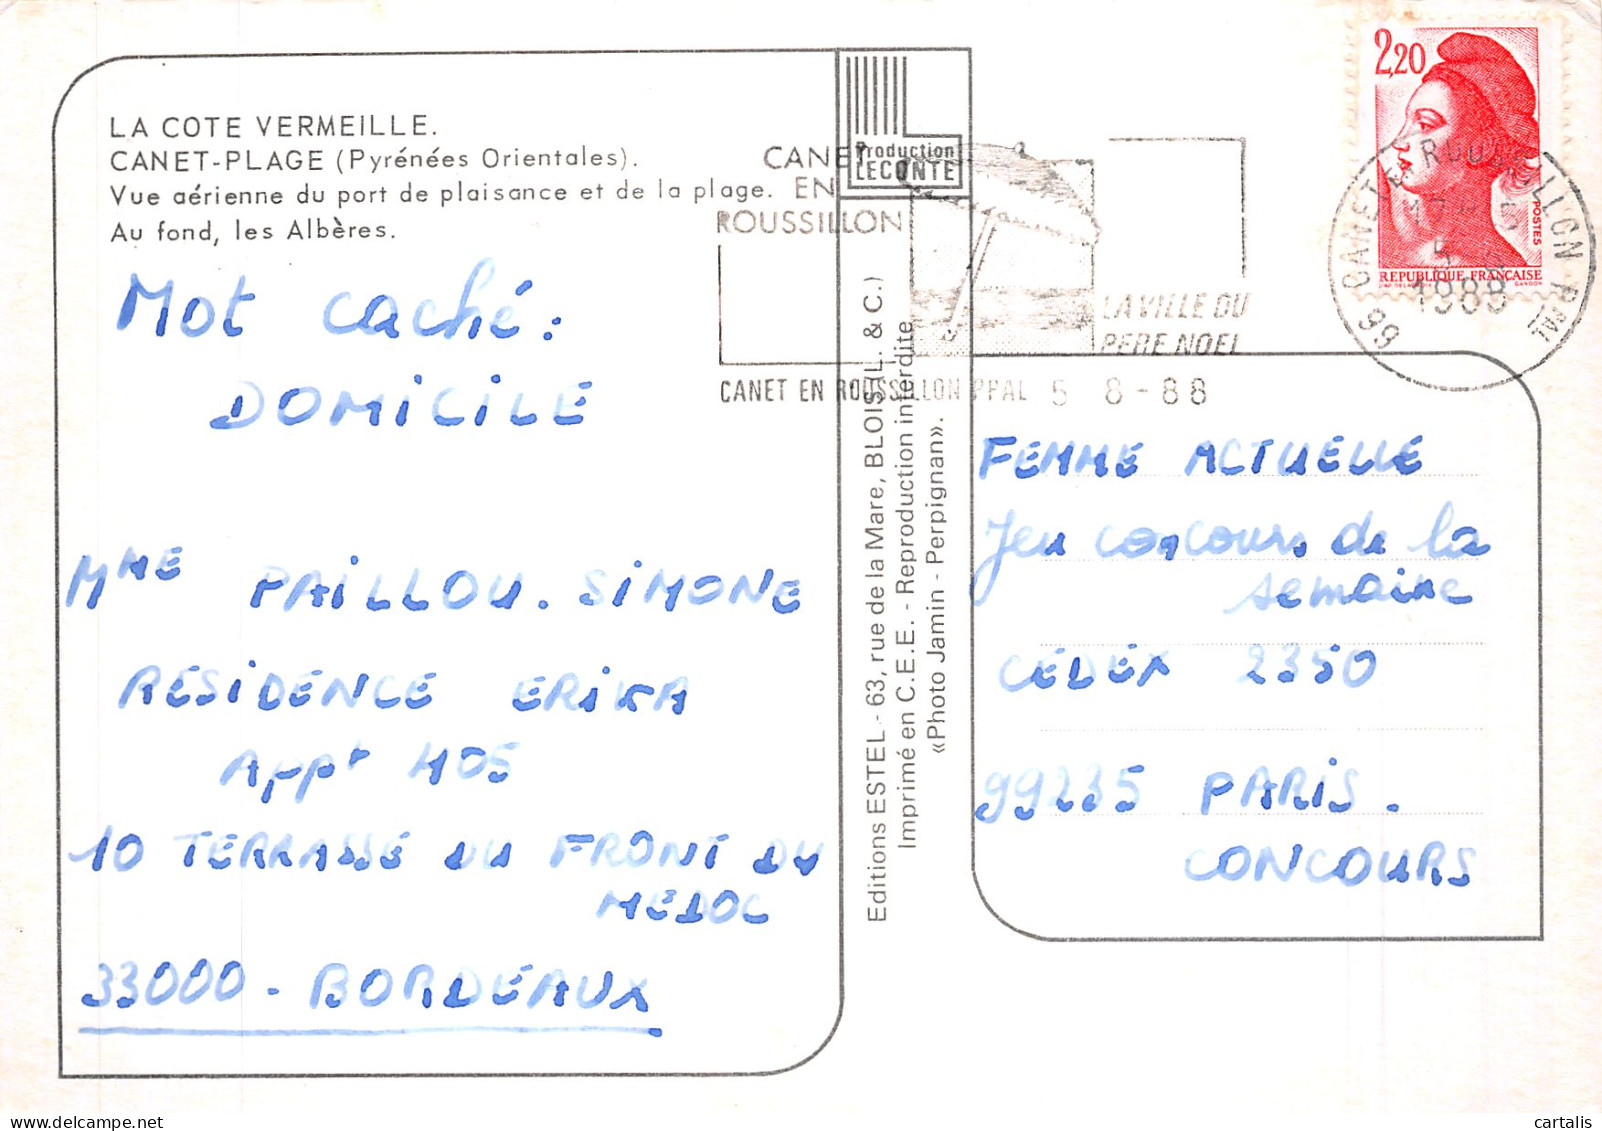 LA COTE VERMEILLE.
CANET-PLAGE (Pyrénées Orientales).
Vue aérienne du port de plaisance et de la plage.
Au fond, les Albères.
Mot caché :
DOMICILE
Mme PAILLOU. SIMONE
RÉSIDENCE ERIKA
Appt 405
10 TERRASSE DU FRONT DU
MÉDOC
33000 - BORDEAUX
Production
LECONTE
CANET
EN
ROUSSILLON
LA VILLE DU
PERE NOEL
CANET EN ROUSSILLON PPAL 5 8-88
Editions ESTEL - 63, rue de la Mare, BLOIS (L. & C.)
Imprimé en C.E.E. - Reproduction interdite
«Photo Jamin - Perpignan».
2,20
POSTES
REPUBLIQUE FRANÇAISE
GANDON
66 CANET EN ROUSSILLON PPAL
1988
FEMME ACTUELLE
Jeu concours de la
semaine
CEDEX 2350
99235 PARIS.
CONCOURS
cartalis